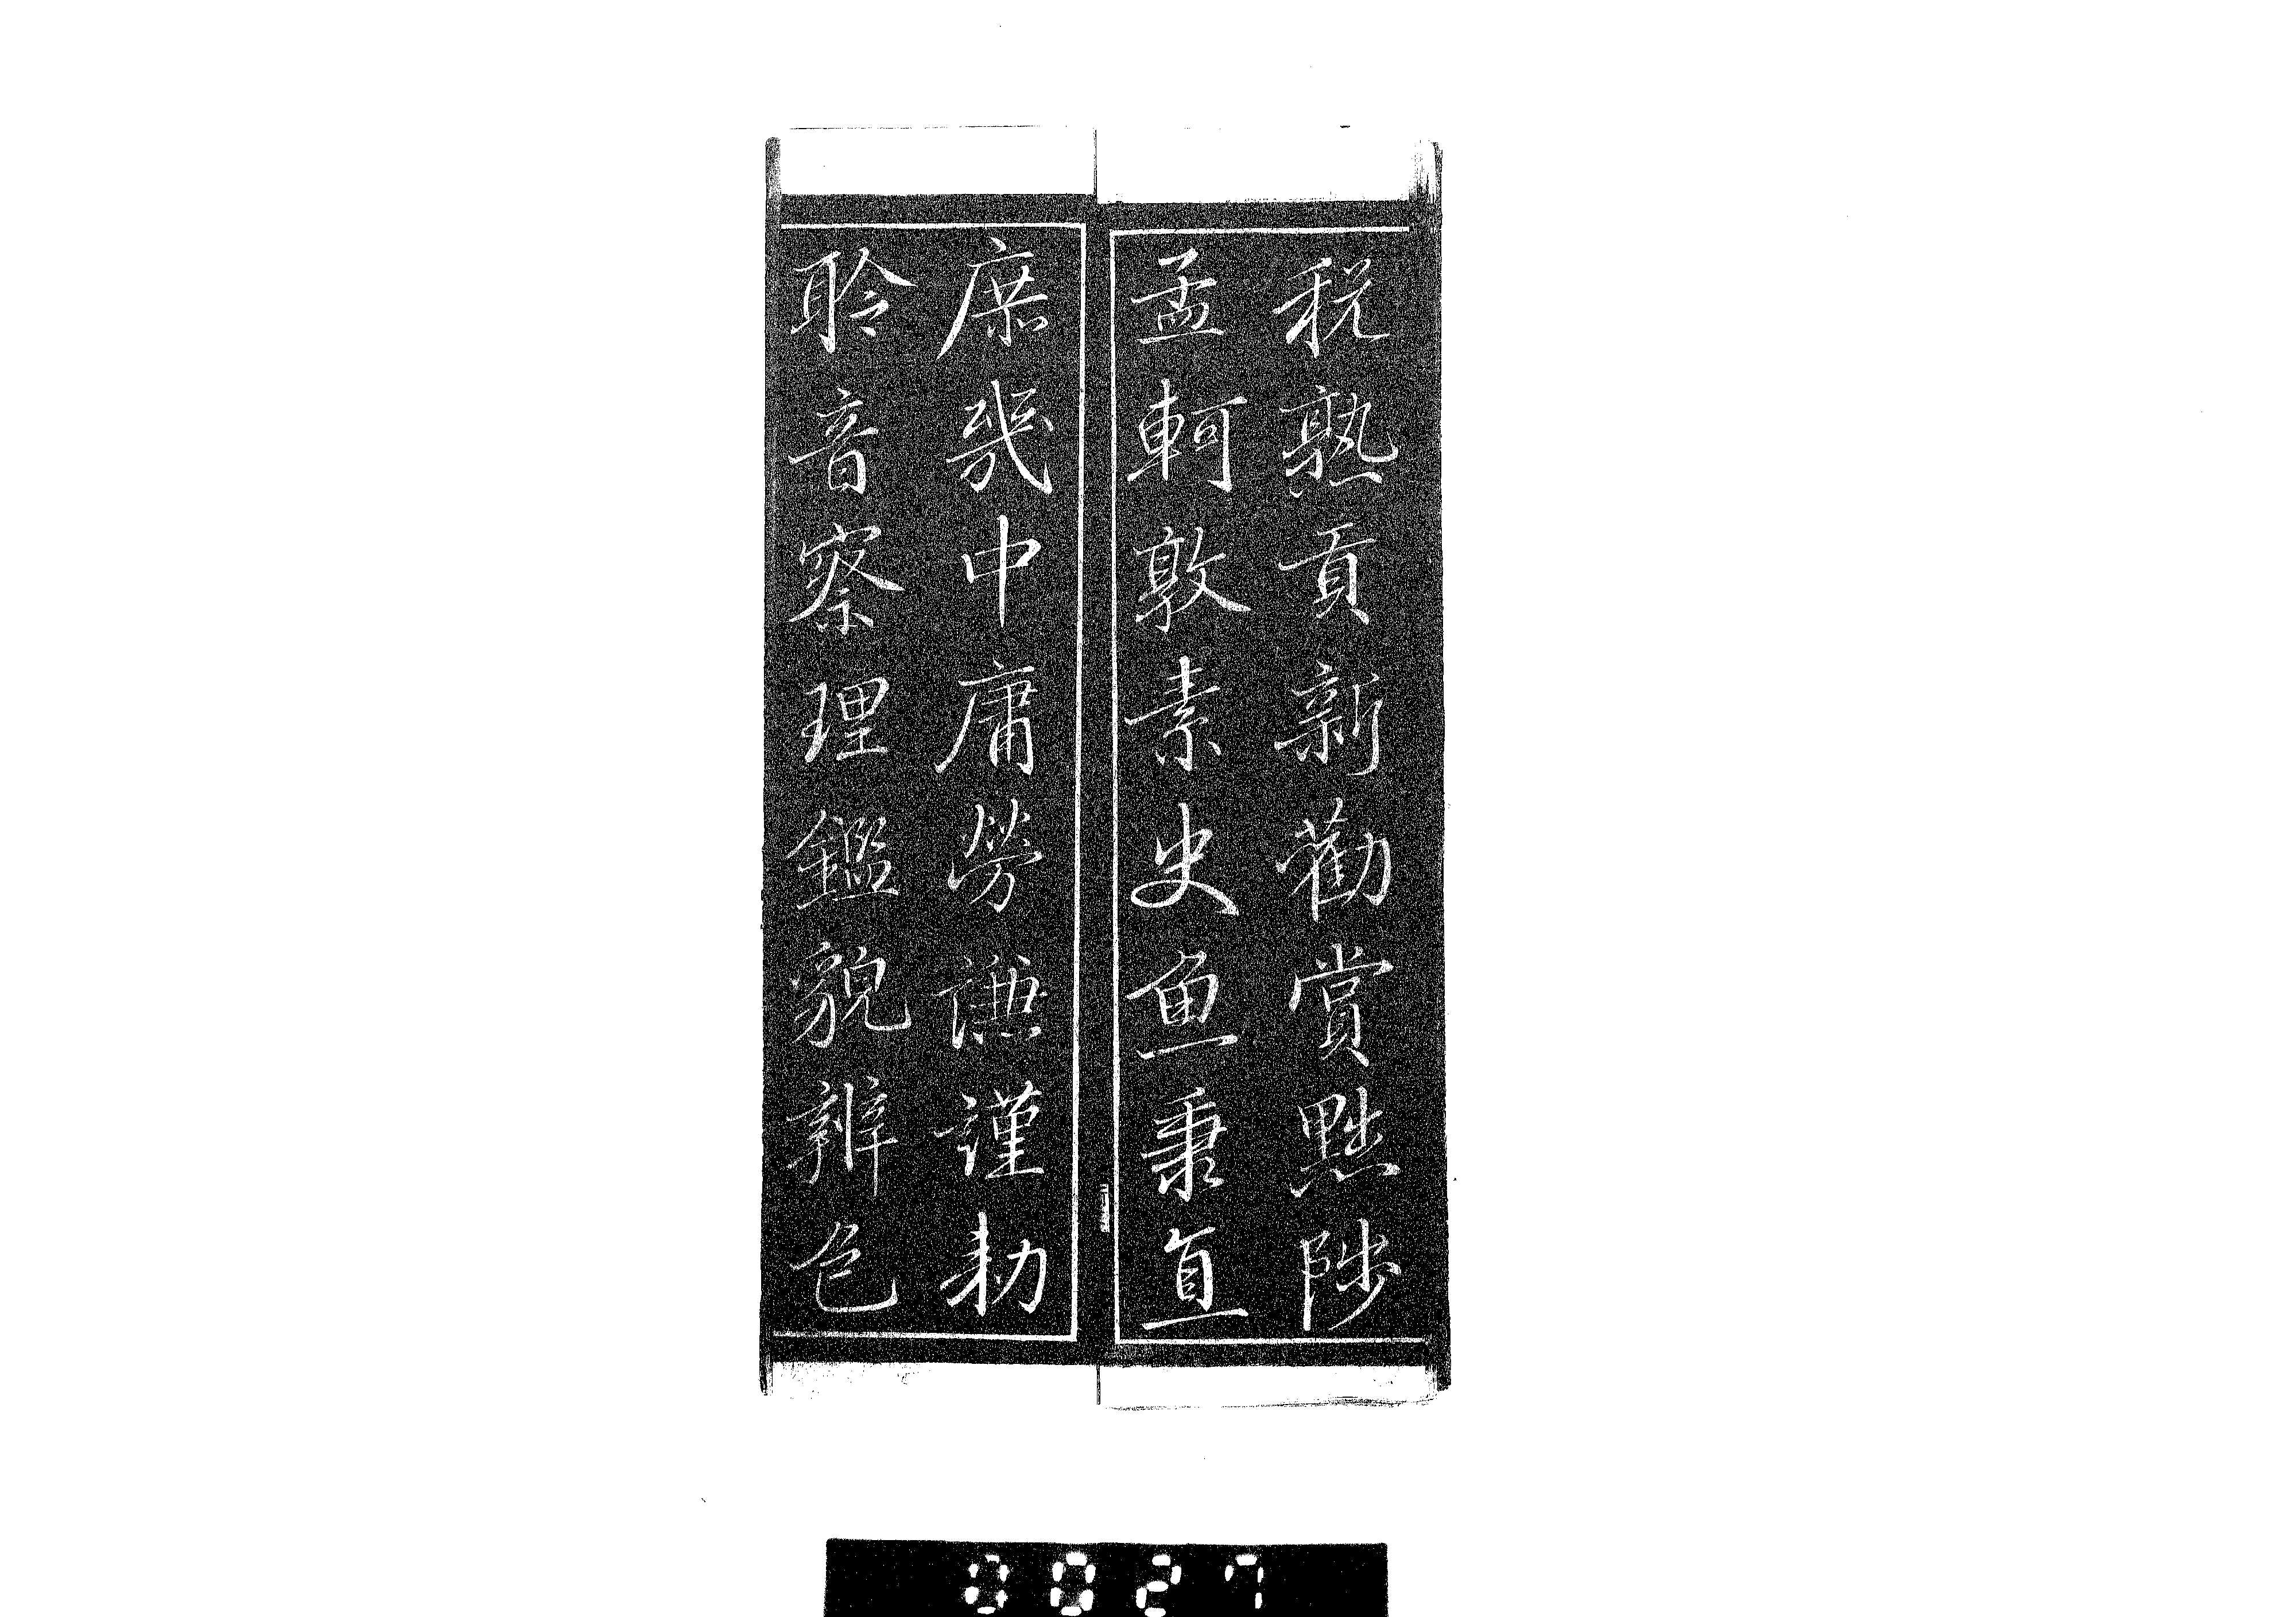 税熟貢新勸賞黜陟
孟軻敦素史魚秉直
庶幾中庸勞謙謹勅
聆音察理鑑貌辨色
0027